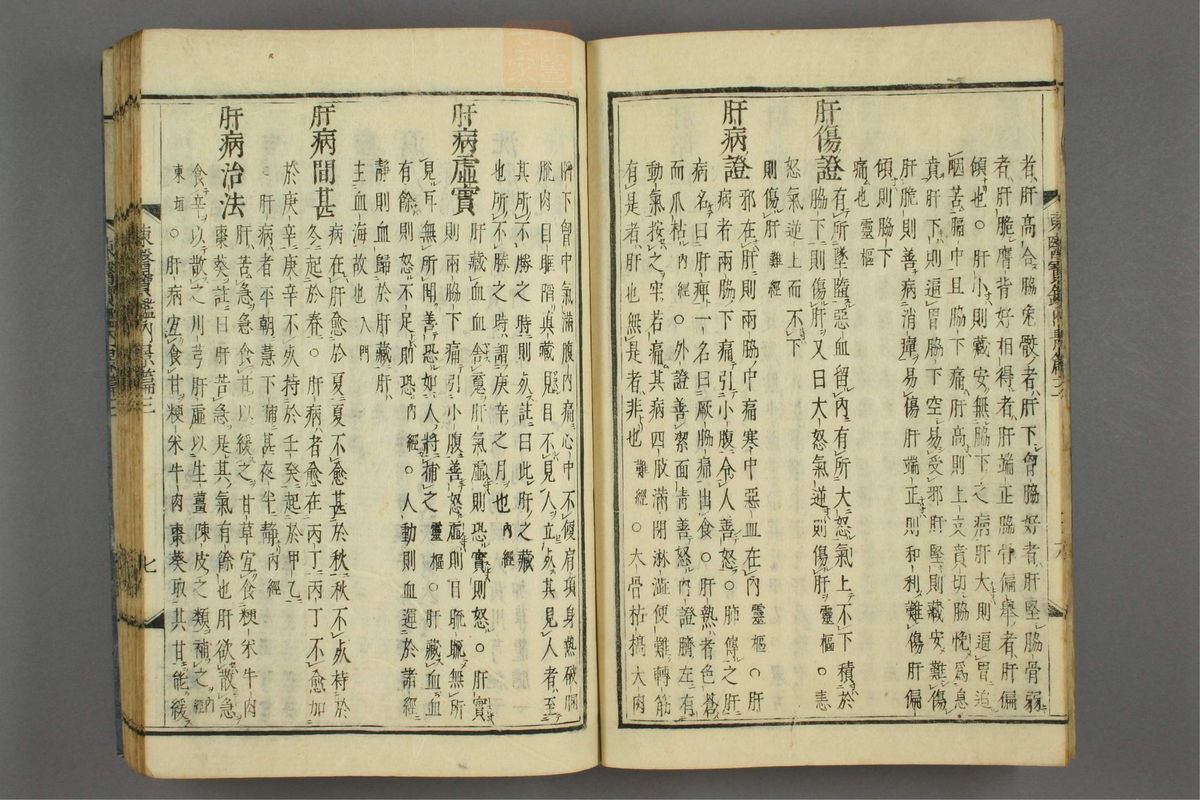 者肝高合脇兔骹者肝下胷脇好者肝堅脇骨弱
者肝脆膺背好相得者肝端正脇骨偏舉者肝偏
傾也○肝小則藏安無脇下之病肝大則逼胃迫
咽苦膈中且脇下痛肝高則上支賁切脇悗爲息
賁肝下則逼胃脇下空易受邪肝堅則藏安難傷
肝脆則善病消癉易傷肝端正則和利難傷肝偏
傾則脇下
痛也 靈樞
肝傷證 有所墮墜惡血留內有所大怒氣上不下積於
脇下則傷肝又曰大怒氣逆則傷肝 靈樞 ○恚
怒氣逆上而不下
則傷肝 難經
肝病證 邪在肝則兩脇中痛寒中惡血在內 靈樞 ○肝
病者兩脇下痛引小腹令人善怒○肺傳之肝
病名曰肝痺一名曰厥脇痛出食○肝熱者色蒼
而爪枯 內經 ○外證善潔面靑善怒內證臍左有
動氣按之牢若痛其病四肢滿閉淋澁便難轉筋
有是者肝也無是者非也 難經 ○大骨枯槁大肉
陷下胷中氣滿腹內痛心中不便肩項身熱破䐃
脫肉目眶陷眞藏見目不見人立死其見人者至
其所不勝之時則死註曰此肝之藏
也所不勝之時謂庚辛之月也 內經
肝病虛實 肝藏血血舍䰟肝氣虛則恐實則怒○肝實
則兩脇下痛引小腹善怒虛則目䀮䀮無所
見耳無所聞善恐如人將捕之 靈樞 ○肝藏血血
有餘則怒不足則恐 內經 ○人動則血運於諸經
靜則血歸於肝藏肝
主血海故也 入門
肝病間甚 病在肝愈於夏夏不愈甚於秋秋不死持於
冬起於春○肝病者愈在丙丁丙丁不愈加
於庚辛庚辛不死持於壬癸起於甲乙
○肝病者平朝慧下晡甚夜半靜 內經
肝病治法 肝苦急急食甘以緩之甘草宜食粳米牛肉
棗葵註曰肝苦急是其氣有餘也肝欲散急
食辛以散之川芎肝虛以生薑陳皮之類補之 內經
東垣 ○肝病宜食甘粳米牛肉棗葵取其甘能緩
東醫寶鑑內景篇三
七